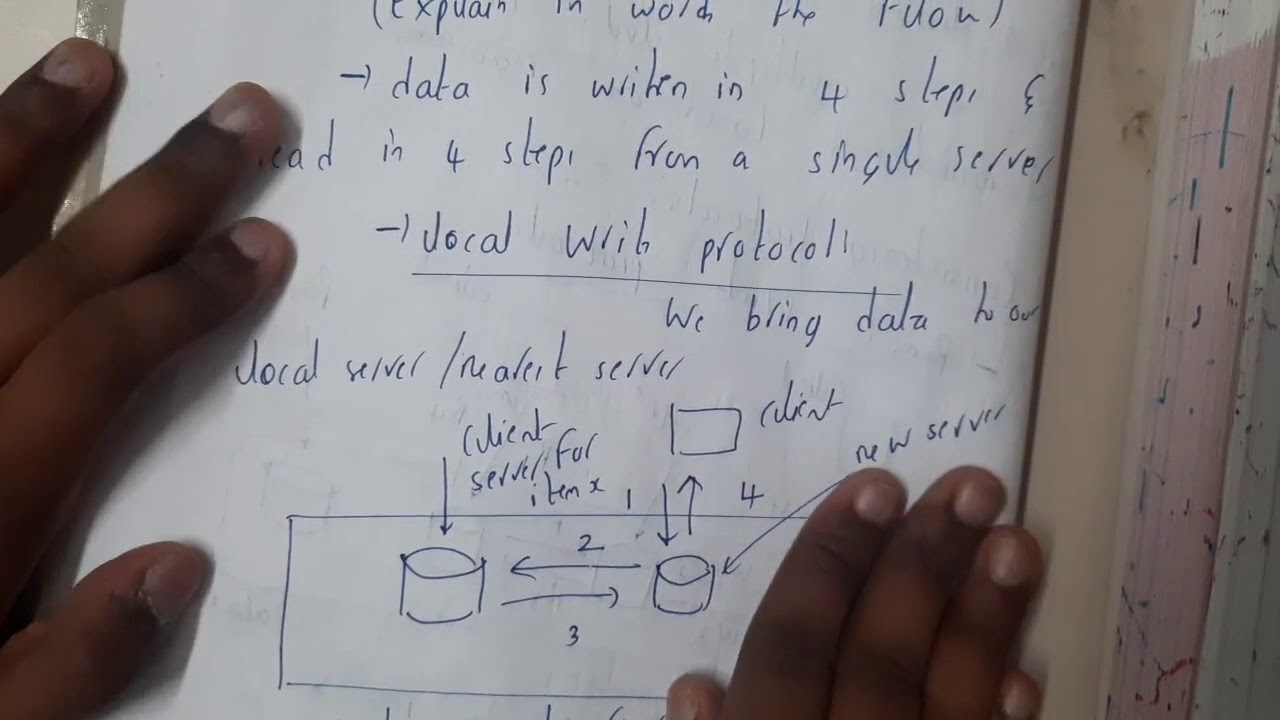 (explain in words the flow)
→ data is written in 4 steps &
read in 4 steps from a single server
→ local write protocol:
We bring data to our
local server/nearest server
client
client
server for
item x
new server
1
4
2
3